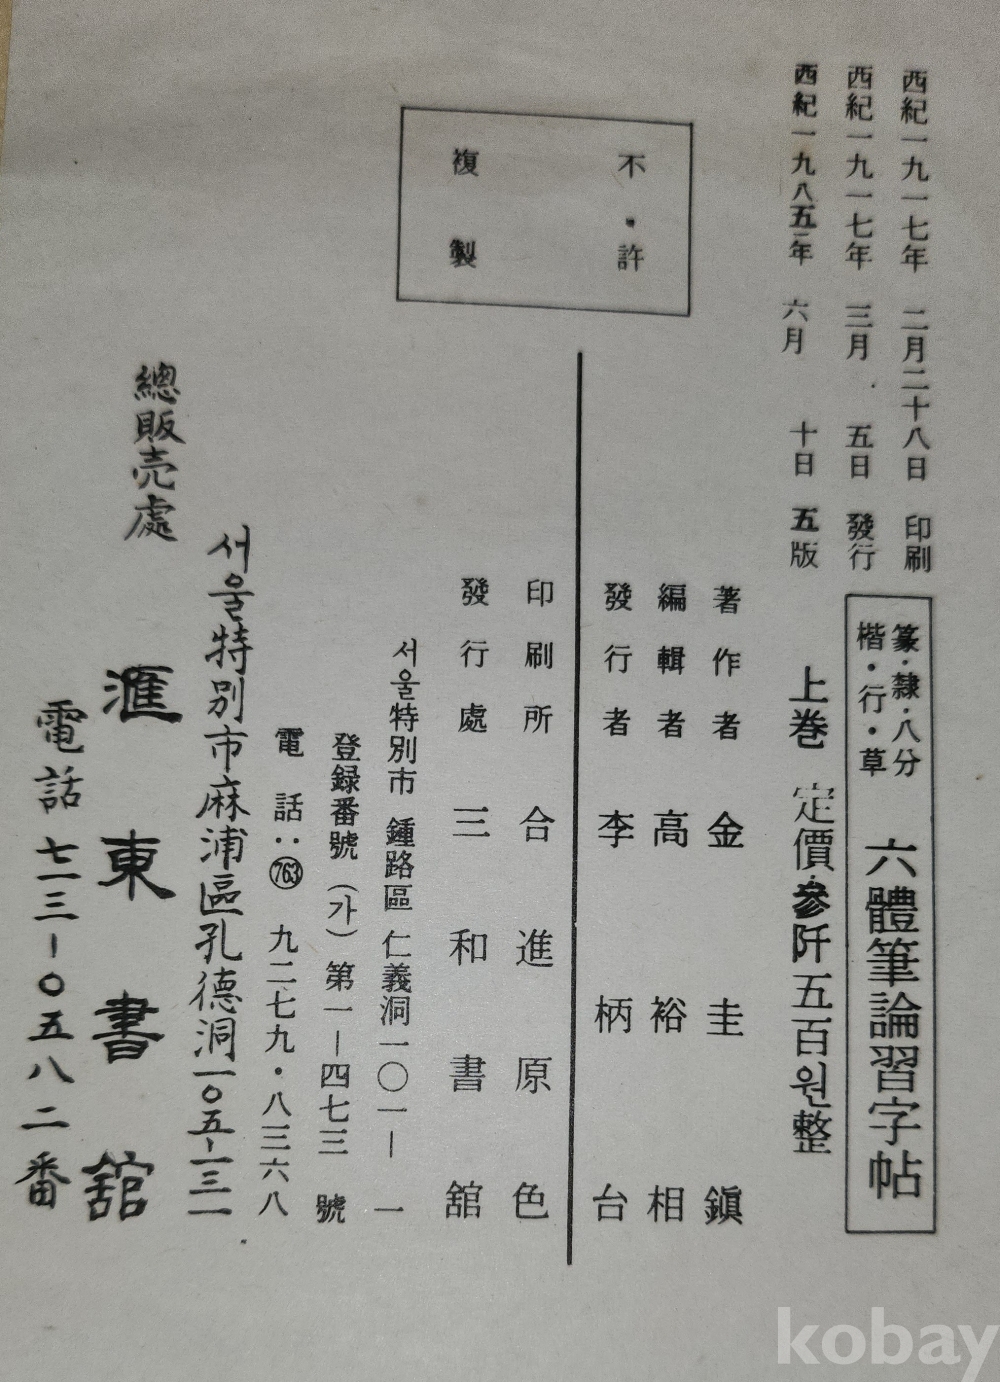 西紀一九一七年 二月二十八日 印刷
西紀一九一七年 三月 五日 發行
西紀一九八五年 六月 十日 五版
不許
複製
篆・隸・八分
楷・行・草
六體筆論習字帖
上巻 定價 參阡五百원整
著作者 金圭鎭
編輯者 高裕相
發行者 李柄台
印刷所 合進原色
發行處 三和書舘
서울特別市 鍾路區 仁義洞一〇一ー一
登録番號 (가) 第一ー四七三號
電話:763 九二七九・八三六八
서울特別市麻浦區孔德洞一0五-一三一
總販売處 滙東書舘
電話七一三-0五八二番
kobay